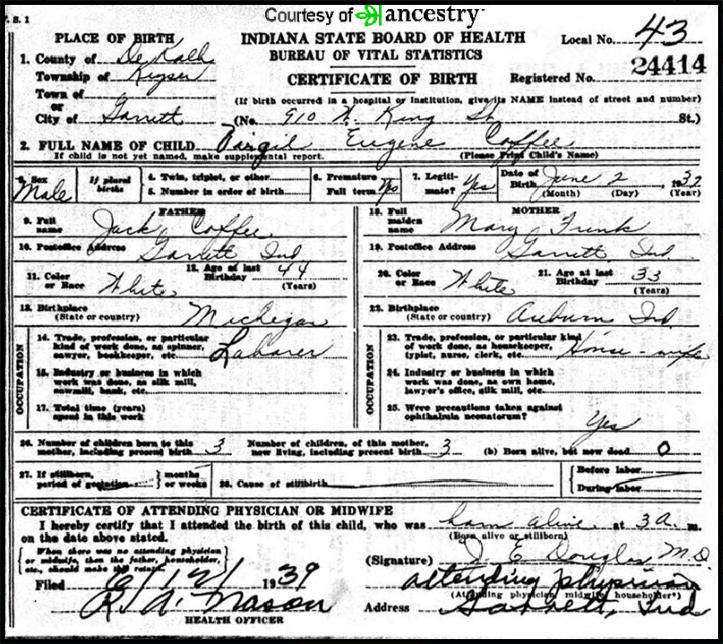 Courtesy of ancestry
V. S. 1
PLACE OF BIRTH INDIANA STATE BOARD OF HEALTH Local No. 43
1. County of De Kalb BUREAU OF VITAL STATISTICS
Township of Keyser CERTIFICATE OF BIRTH Registered No. 24414
Town of
or (If birth occurred in a hospital or institution, give its NAME instead of street and number)
City of Garrett (No. 910 N. King St. St.)
2. FULL NAME OF CHILD Virgil Eugene Coffee
If child is not yet named, make supplemental report. (Please Print Child's Name)
3. Sex Male If plural births 4. Twin, triplet, or other 6. Premature Full term Yes 7. Legitimate? Yes Date of Birth June 2 1939
5. Number in order of birth (Month) (Day) (Year)
FATHER MOTHER
9. Full name Jack Coffee 18. Full maiden name Mary Funk
10. Postoffice Address Garrett Ind 19. Postoffice Address Garrett, Ind
11. Color or Race White 12. Age at last Birthday 44 (Years) 20. Color or Race White 21. Age at last Birthday 33 (Years)
13. Birthplace (State or country) Michigan 22. Birthplace (State or country) Auburn Ind
OCCUPATION 14. Trade, profession, or particular kind of work done, as spinner, sawyer, bookkeeper, etc. Laborer OCCUPATION 23. Trade, profession, or particular kind of work done, as housekeeper, typist, nurse, clerk, etc. House-wife
15. Industry or business in which work was done, as silk mill, sawmill, bank, etc. 24. Industry or business in which work was done, as own home, lawyer's office, silk mill, etc.
17. Total time (years) spent in this work 25. Were precautions taken against ophthalmia neonatorum? Yes
26. Number of children born to this mother, including present birth 3 Number of children, of this mother, now living, including present birth 3 (b) Born alive, but now dead 0
27. If stillborn, period of gestation months or weeks 28. Cause of stillbirth Before labor
During labor
CERTIFICATE OF ATTENDING PHYSICIAN OR MIDWIFE
I hereby certify that I attended the birth of this child, who was born alive at 3 a. m.
on the date above stated. (Born alive or stillborn)
When there was no attending physician or midwife, then the father, householder, etc., should make this (Signature) J. E. Douglas, M.D.
Filed 6/12/ 1939 attending physician
(Attending physician, midwife, householder)
R. A. Nason Address Garrett, Ind
HEALTH OFFICER